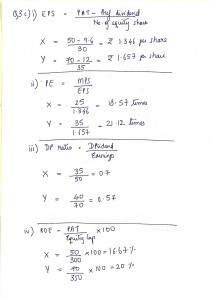 Q.3 c) i) EPS = PAT - Pref dividend / No. of equity share
X = 50 - 9.6 / 30 = ₹ 1.346 per share
Y = 70 - 12 / 35 = ₹ 1.657 per share
ii) PE = MPS / EPS
X = 25 / 1.346 = 18.57 times
Y = 35 / 1.657 = 21.12 times
iii) DP ratio = Dividend / Earnings
X = 35 / 50 = 0.7
Y = 40 / 70 = 0.57
iv) ROE = PAT / Equity cap × 100
X = 50 / 300 × 100 = 16.67 %
Y = 70 / 350 × 100 = 20 %